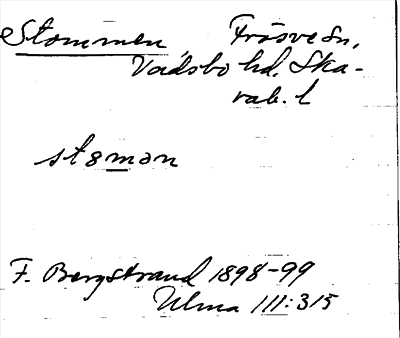 Stommen, Fräsve sn,
Vadsbo hd. Ska-
rab. l
stomən
F. Bergstrand 1898-99
Ulma 111:315